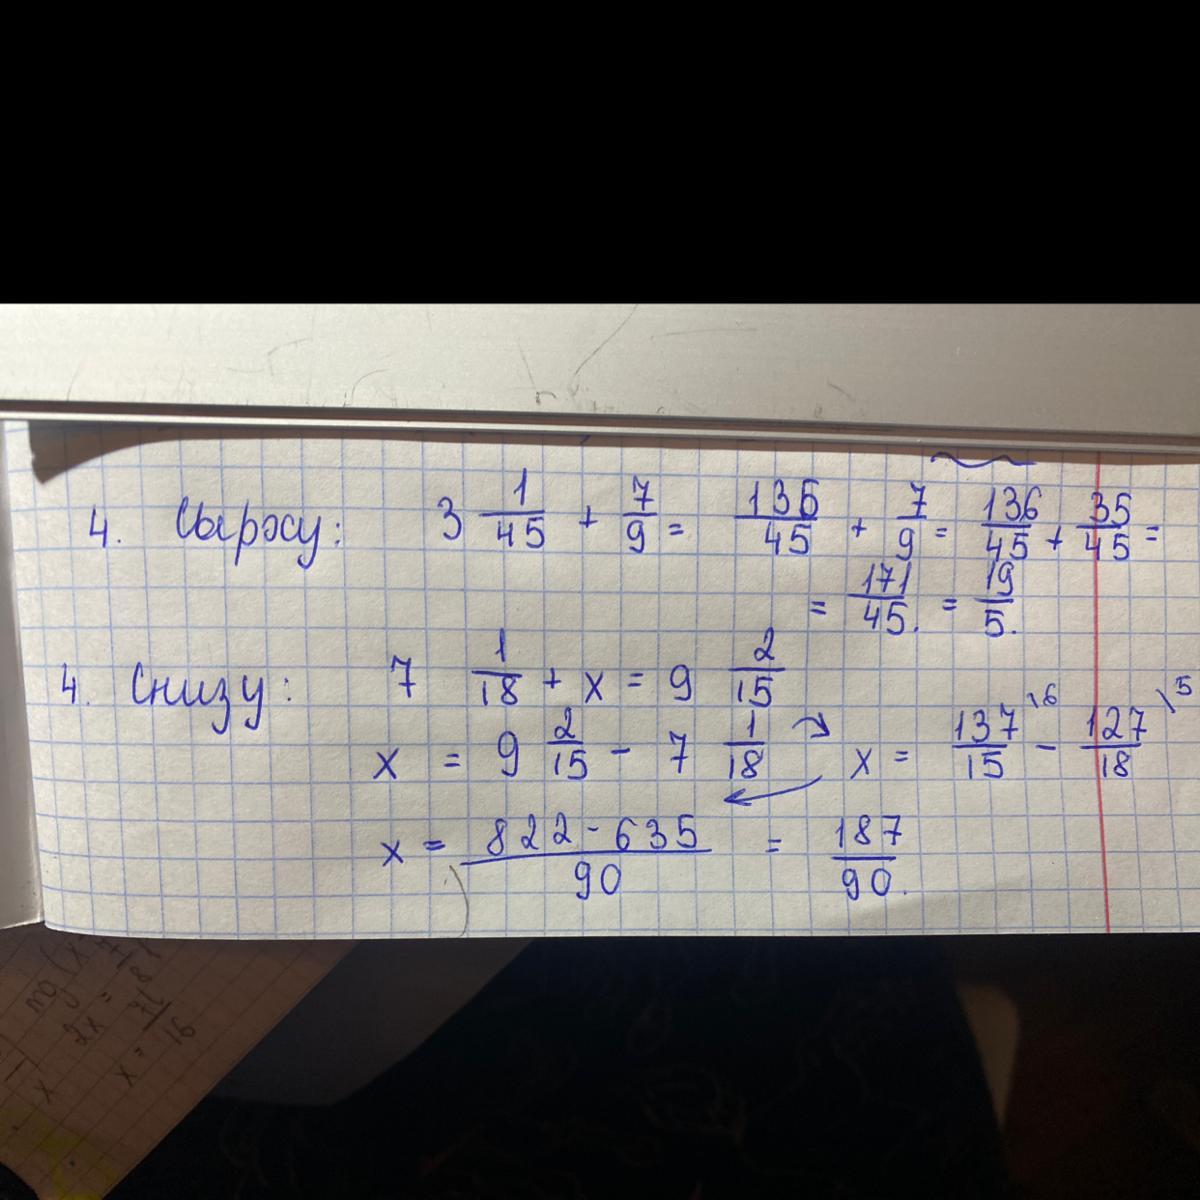 4. Сырэсу: 3 1/45 + 7/9 = 136/45 + 7/9 = 136/45 + 35/45 =
= 171/45. = 19/5.
4. Снизу: 7 1/18 + x = 9 2/15
x = 9 2/15 - 7 1/18 x = 137/15 \6 - 127/18 \5
x = 822 - 635/90 = 187/90.
2x =
x = 71/16
x